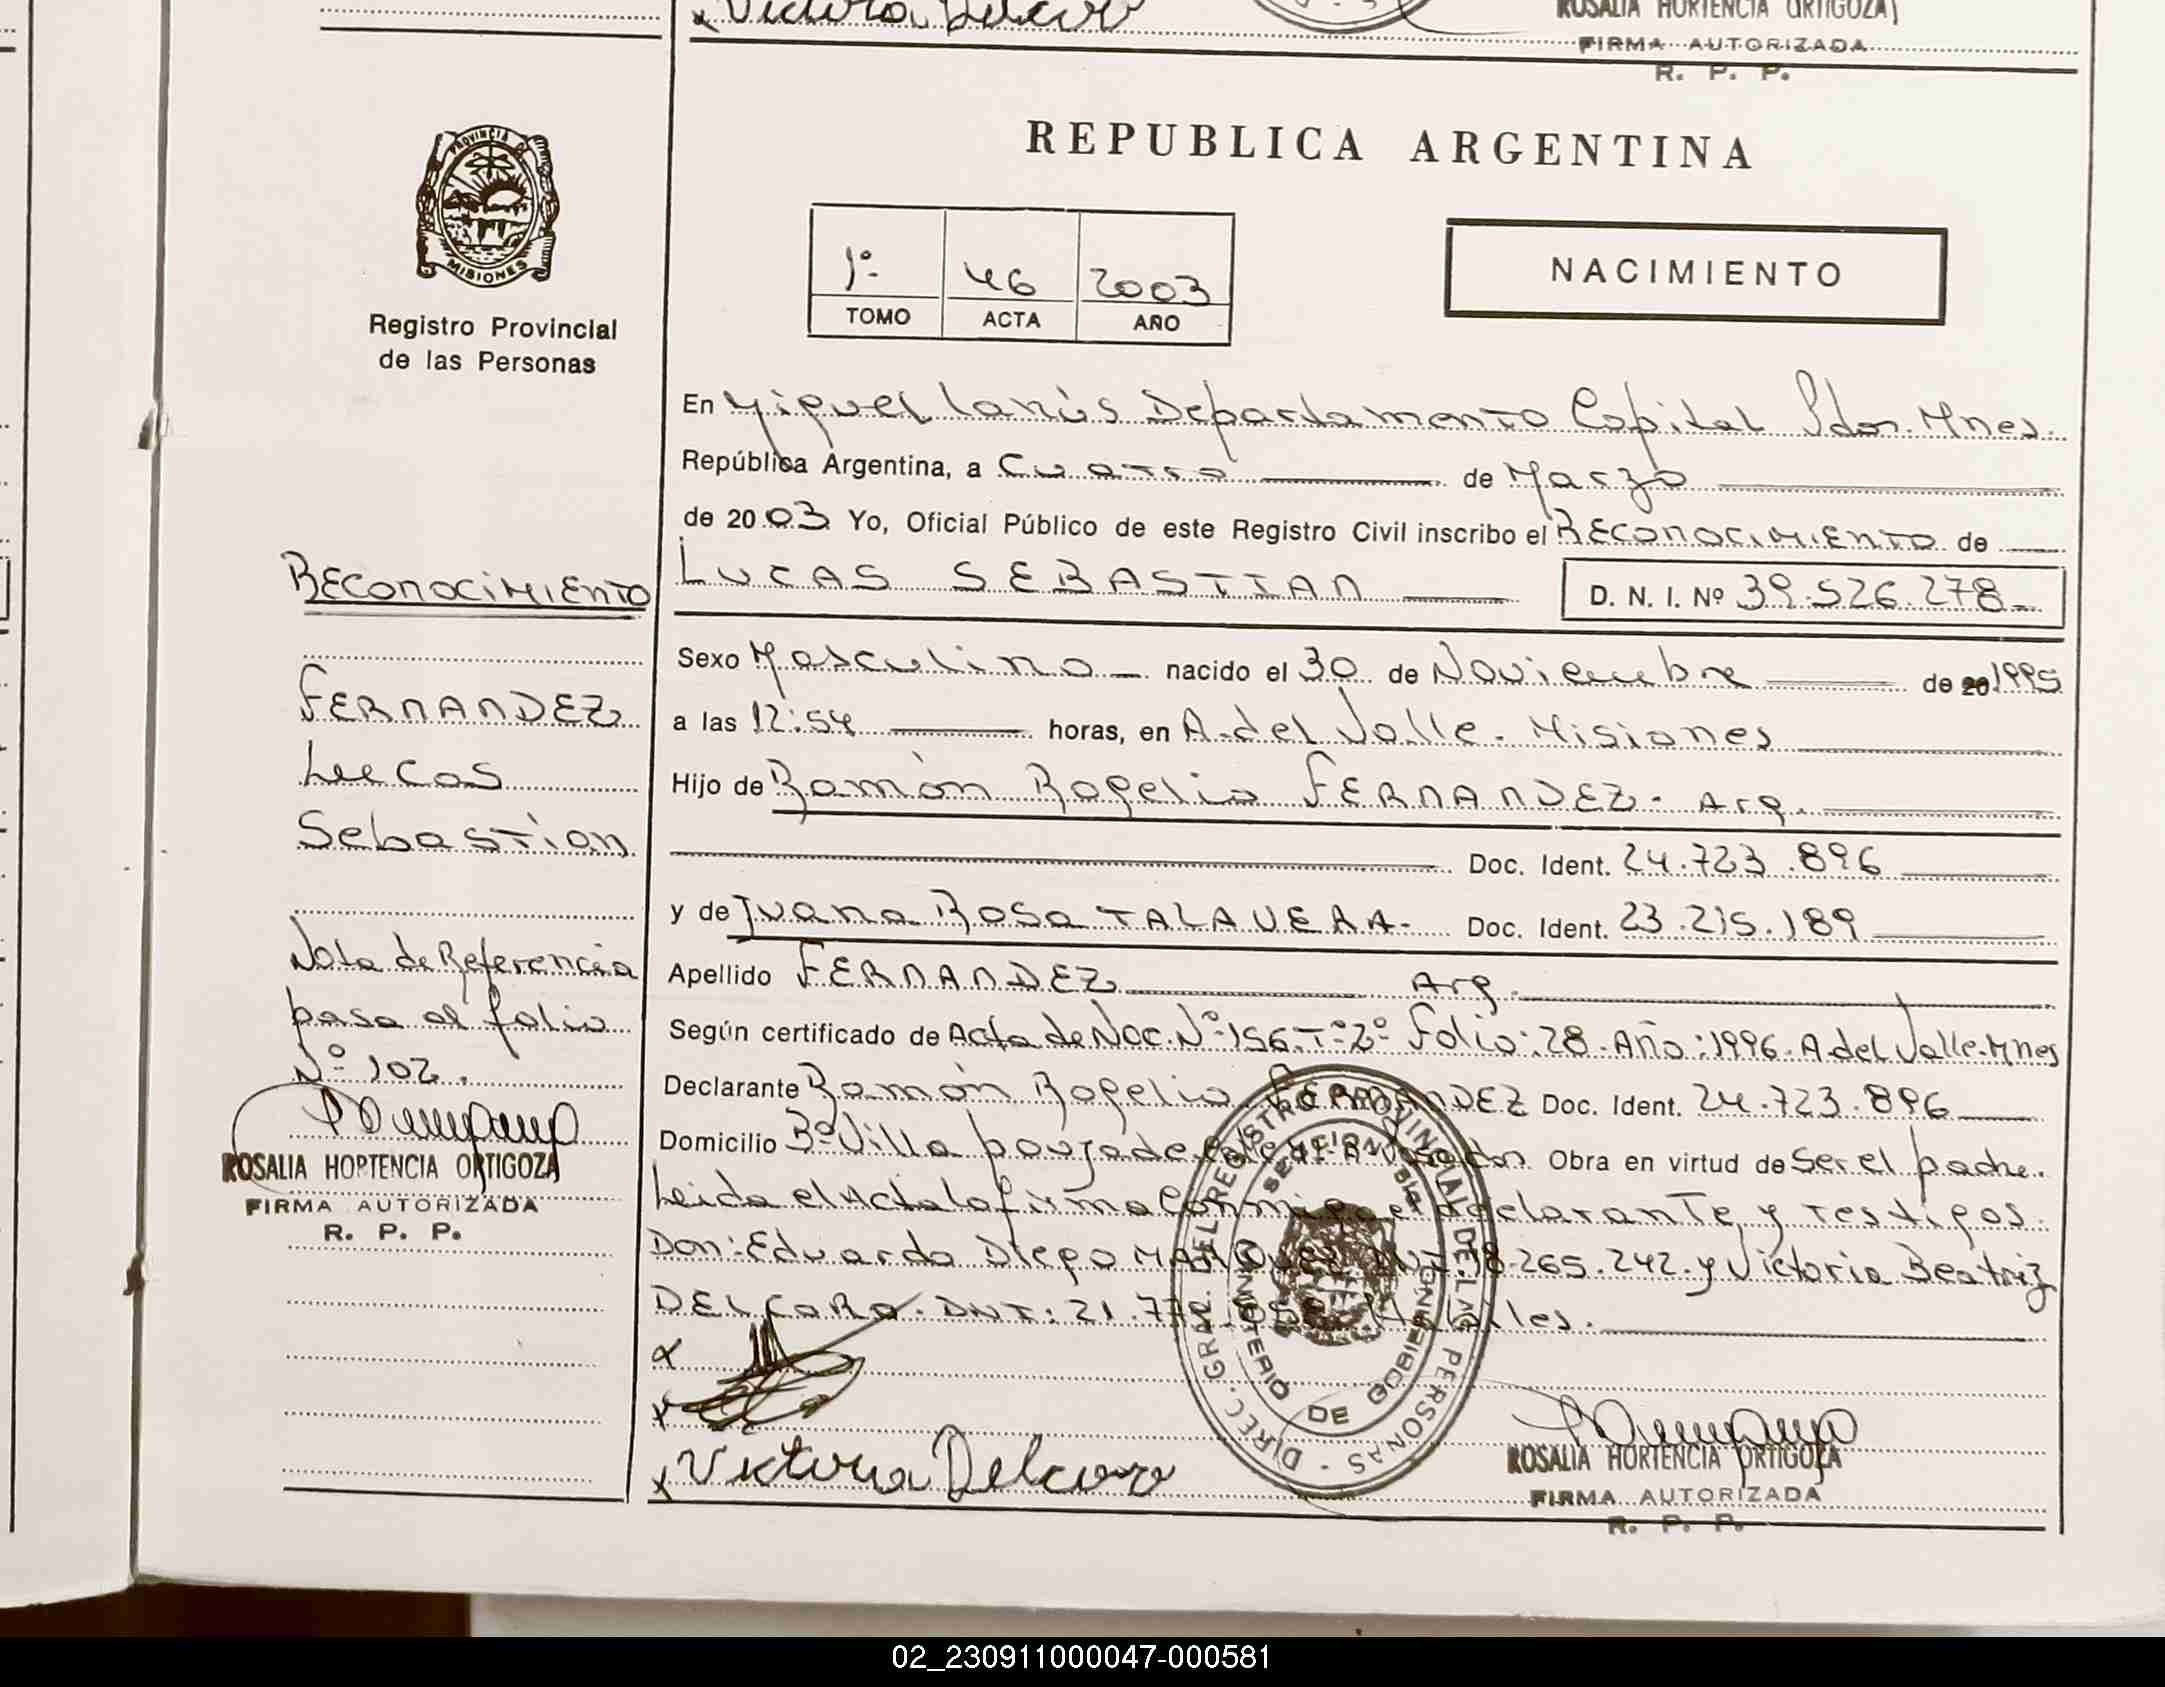 Victoria Delcaro
ROSALIA HORTENCIA ORTIGOZA
FIRMA AUTORIZADA
R. P. P.
PROVINCIA DE
MISIONES
Registro Provincial
de las Personas
REPUBLICA ARGENTINA
1º 46 2003
TOMO ACTA AÑO
NACIMIENTO
En Miguel Lanús Departamento Capital Pdor. Mnes.
República Argentina, a Cuatro de Marzo
de 2003 Yo, Oficial Público de este Registro Civil inscribo el RECONOCIMIENTO de
LUCAS SEBASTIAN D. N. I. Nº 39.526.278
Sexo Masculino nacido el 30 de Noviembre de 20 1995
a las 12:54 horas, en A. del Valle - Misiones
Hijo de Ramón Rogelio FERNANDEZ - Arg.
Doc. Ident. 24.723.896
y de Juana Rosa TALAVERA - Doc. Ident. 23.215.189
Apellido FERNANDEZ Arg.
Según certificado de Acta de Nac. Nº 156 - Tº 2º Folio: 28 - Año: 1996 - A. del Valle - Mnes
Declarante Ramón Rogelio FERNANDEZ Doc. Ident. 24.723.896
Domicilio Bº Villa Obra en virtud de Ser el padre.
Leida el Acta la firma conmigo el declarante y testigos
Don: Eduardo Diego DNI: 18.265.242 y Victoria Beatriz
DELCARO. DNI: 21. Hábiles.
x
x
x Victoria Delcaro
DIREC. GRAL. DEL REGISTRO PROVINCIAL DE LAS PERSONAS
MINISTERIO DE GOBIERNO
ROSALIA HORTENCIA ORTIGOZA
FIRMA AUTORIZADA
R. P. P.
RECONOCIMIENTO
FERNANDEZ
Lucas
Sebastian
Nota de Referencia
pasa al folio
Nº 102.
ROSALIA HORTENCIA ORTIGOZA
FIRMA AUTORIZADA
R. P. P.
02_230911000047-000581